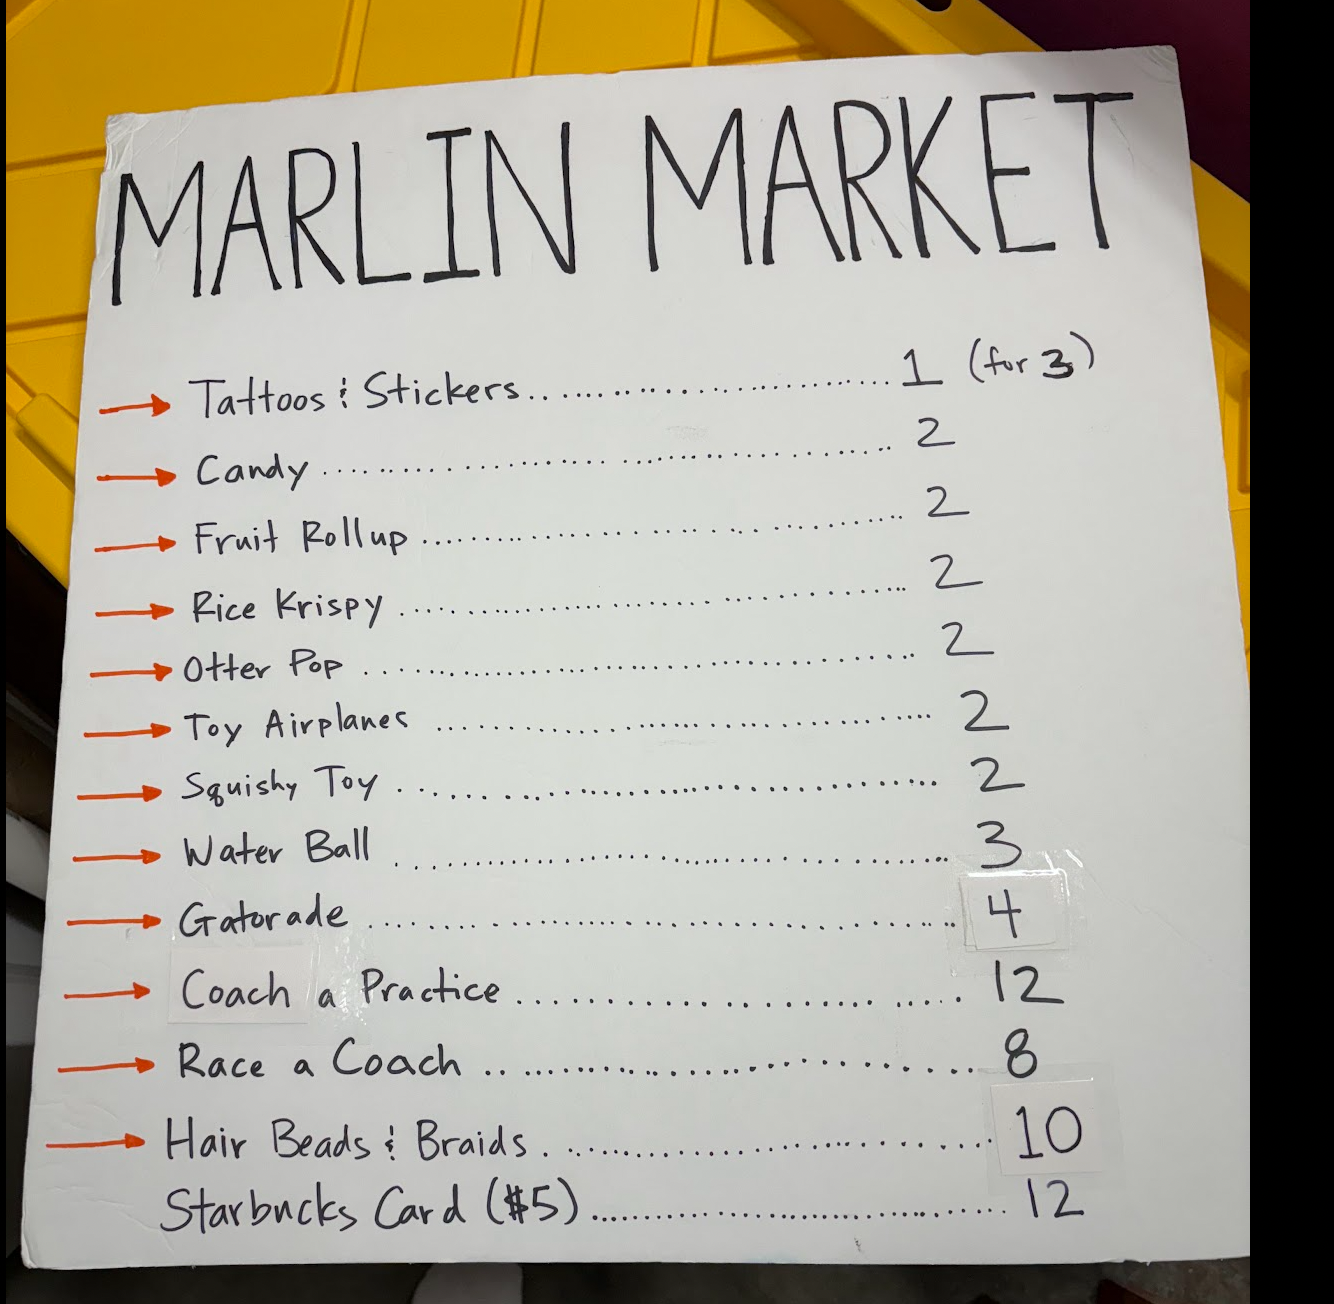 MARLIN MARKET
→ Tattoos & Stickers.................... 1 (for 3)
→ Candy.................... 2
→ Fruit Rollup.................... 2
→ Rice Krispy.................... 2
→ Otter Pop.................... 2
→ Toy Airplanes.................... 2
→ Squishy Toy.................... 2
→ Water Ball.................... 3
→ Gatorade.................... 4
→ Coach a Practice.................... 12
→ Race a Coach.................... 8
→ Hair Beads & Braids.................... 10
Starbucks Card ($5).................... 12